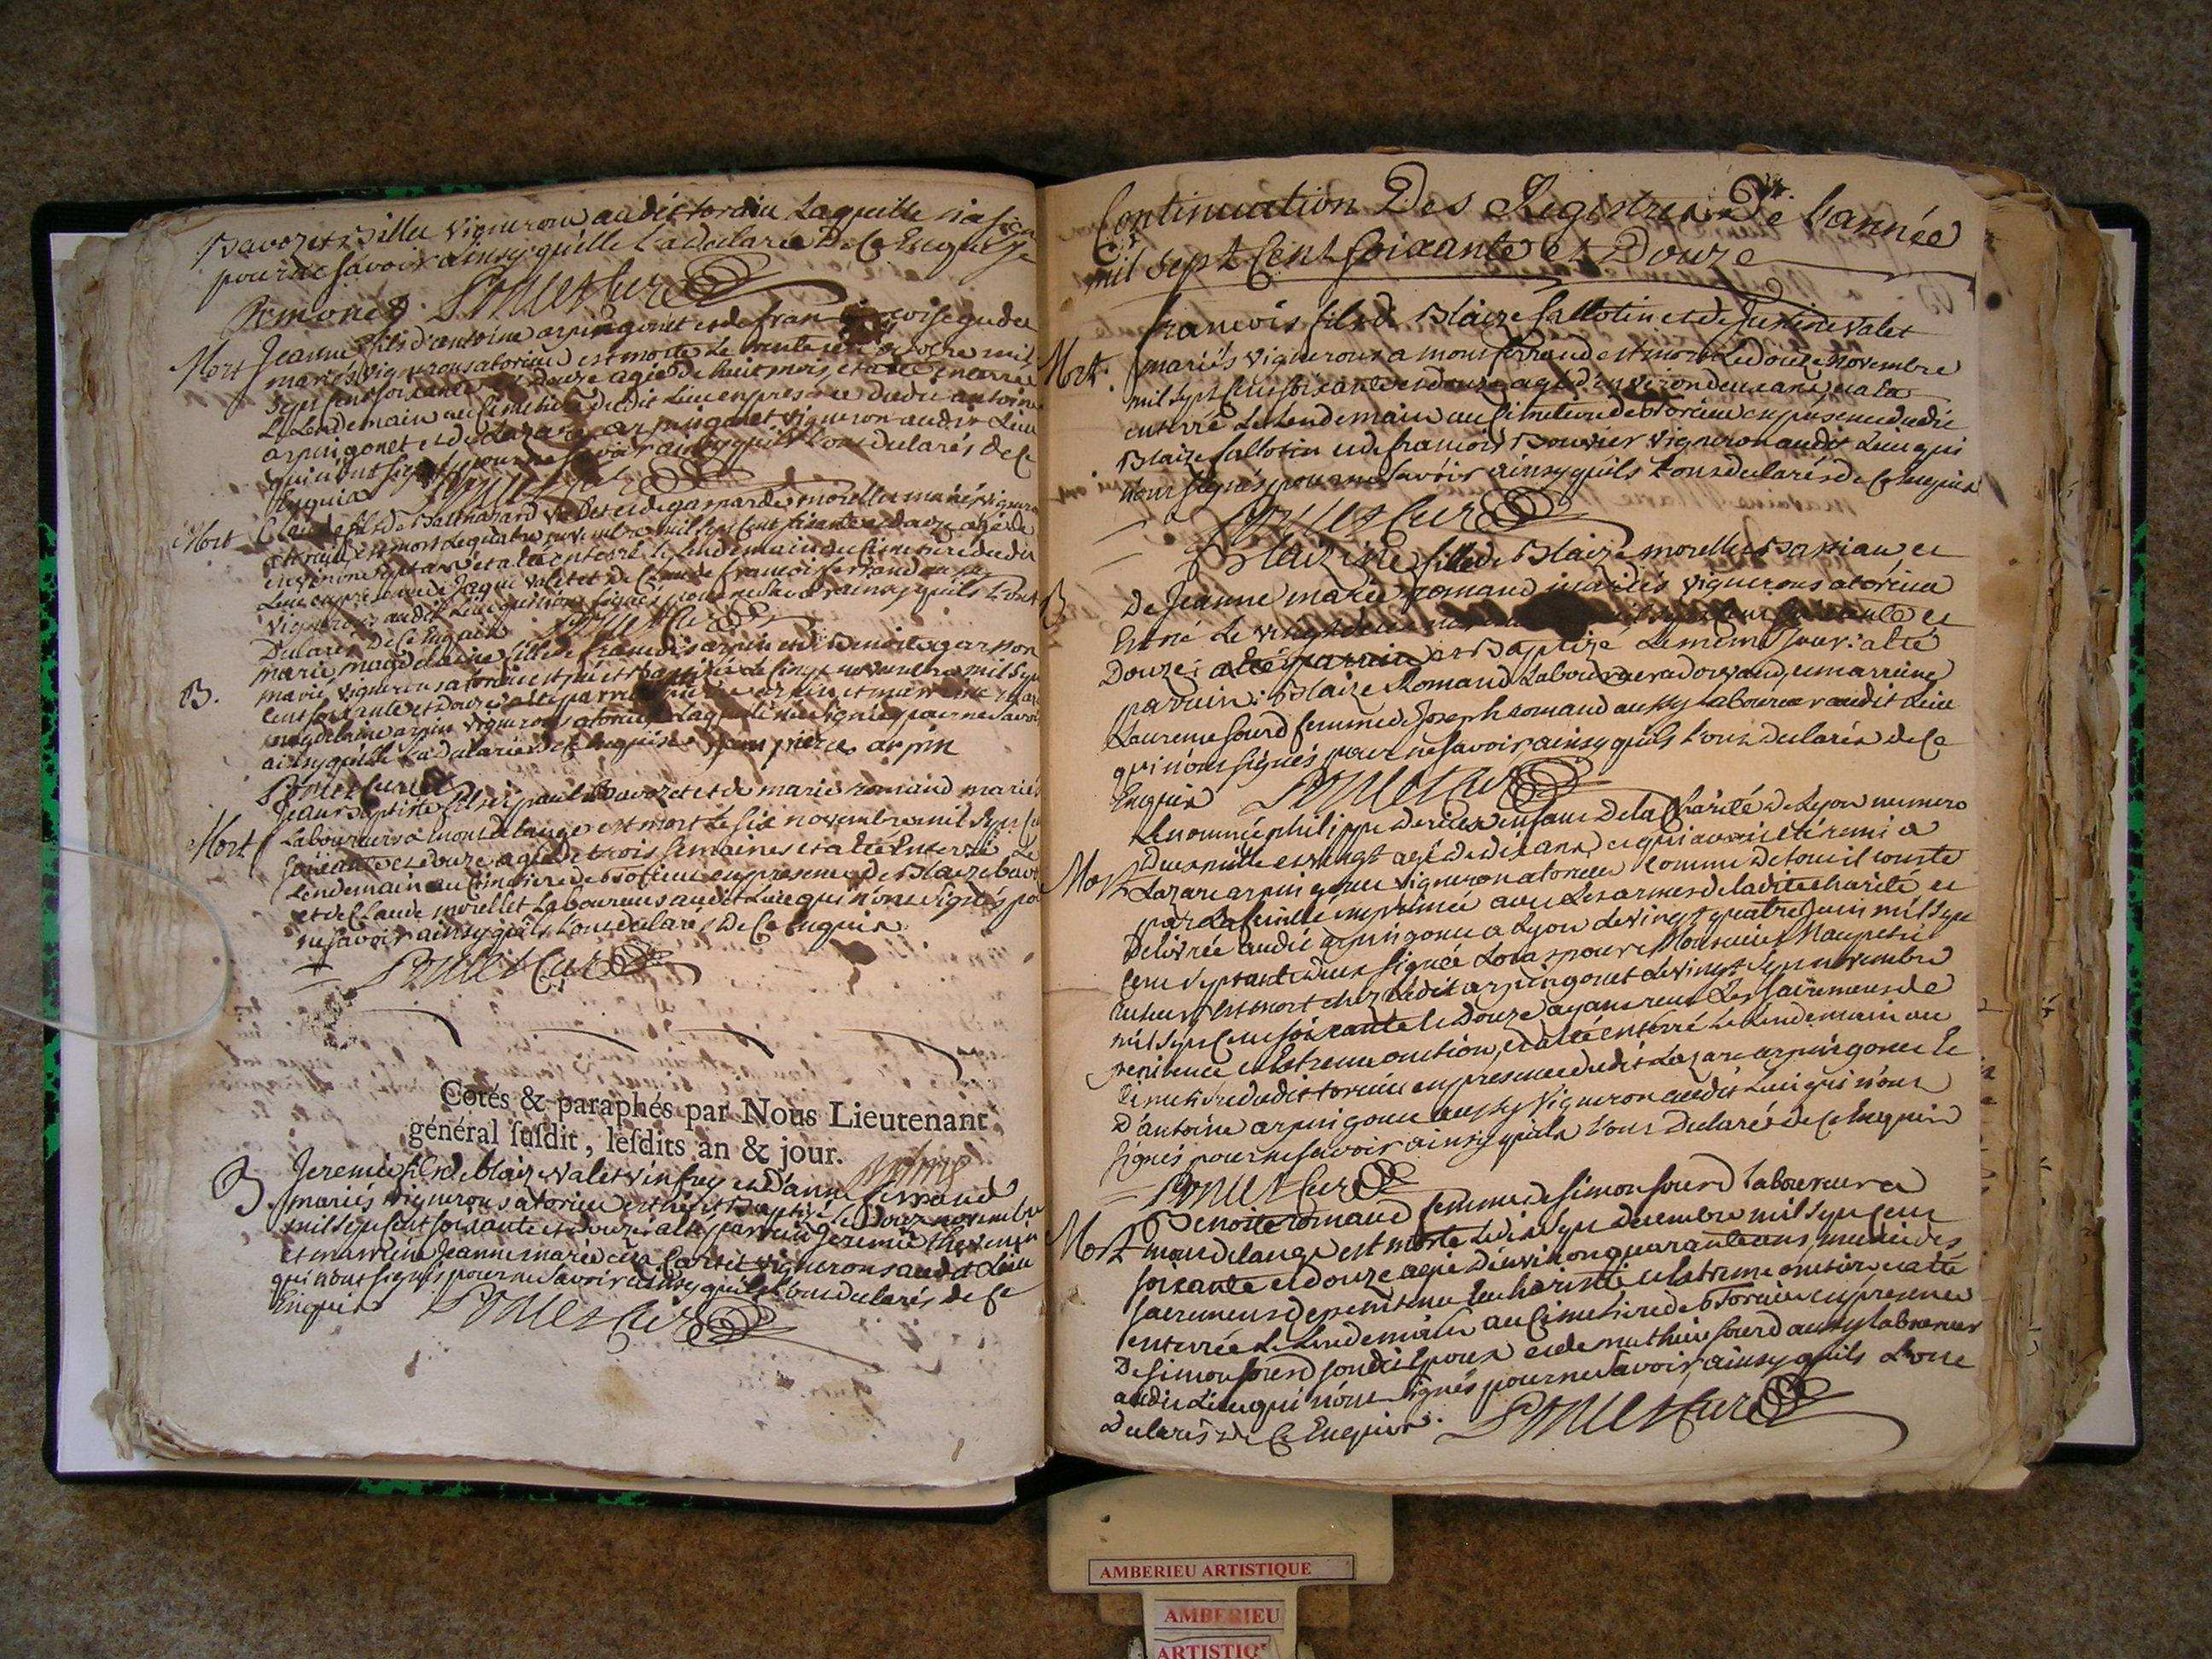 Bavozet Billet vigneron audit torcieu Laquelle n'a signé
pour ne savoir ainsy qu'elle l'a declaré De Ce Enquise
Poncet Curé
Mort Jeanne fille d'antoine arpin gonet et de françoise
mariés vignerons a torcieu est morte Le trente octobre mil
sept Cent soixante et Douze agée De huit mois, et a eté enterrée
Le Lendemain au Cimetiere dudit Lieu en presence dudit antoine
arpin gonet et de Lazare arpin gonet vigneron audit Lieu
qui n'ont signés pour ne savoir ainsy qu'ils L'ont declarés de Ce
Enquis Poncet Curé
Mort Claude fils de Balthazard valet et de gasparde morellet mariés vignerons
a torcieu est mort Le quatre novembre mil sept Cent soixante et douze agé de
environ ans et a eté enterré le Lendemain au Cimetiere dudit
Lieu en presence de Jaque valet et de Claude françois ferrand
vignerons audit Lieu qui n'ont signés pour ne savoir ainsy qu'ils L'ont
Declarés De Ce Enquis Poncet Curé
B. marie magdelaine fille de francois arpin et de Benoite garson
mariés vignerons a torcieu est née et baptizée Le Cinq novembre mil sept
Cent soixante et Douze a eté parrain pierre arpin et marraine marie
magdelaine arpin vignerons a torcieu Laquelle n'a signé pour ne savoir
ainsy qu'elle L'a declaré de Ce Enquise Jean pierre arpin
Poncet Curé
Mort Jean Baptiste fils de paul Bavozet et de marie romand mariés
Laboureurs a montdelange est mort Le six novembre mil sept Cent
soixante et Douze agé De trois semaines et a eté Enterré Le
Lendemain au Cimetiere de torcieu en presence de Blaize bavozet
et de Claude morellet Laboureurs audit Lieu qui n'ont signés pour
ne savoir ainsy qu'ils L'ont declarés De Ce Enquis
Poncet Curé
Cotés & paraphés par Nous Lieutenant
général ſuſdit, leſdits an & jour.
B. Jeremie fils de blaize valet vinfrey et D'anne ferrand
mariés vignerons a torcieu est né et Baptizé Le Douze novembre
mil sept Cent soixante et douze a eté parrain Jeremie thevenin
et marraine Jeanne marie vignerons audit Lieu
qui n'ont signés pour ne savoir ainsy qu'ils L'ont declarés de Ce
Enquis Poncet Curé
Continuation Des Registres De L'année
mil sept Cent soixante et Douze
francois fils de Blaize sallotin et de Justine valet
Mort. mariés vignerons a montferrand est mort Le douze novembre
mil sept Cent soixante et douze agé d'environ deux ans, et a eté
enterré Le Lendemain au Cimetiere de torcieu en presence dudit
Blaize sallotin et de francois Bouvier vigneron audit Lieu qui
n'ont signés pour ne savoir ainsy qu'ils L'ont declarés de Ce Enquis
Poncet Curé
Blaizine fille de Blaize morellet Bastian et
B De Jeanne marie romand mariés vignerons a torcieu
Est né Le vingt deux mil sept Cent soixante et
Douze: a eté parrain et Baptizé Le même Jour: a eté
parrain: Blaize Romand Laboureur a dorvand, et marraine
Laurence sourd femme de Joseph romand aussy Laboureur audit Lieu
qui n'ont signés pour ne savoir ainsy qu'ils L'ont Declarés de Ce
Enquis Poncet Curé
Le nommé philippe enfant De la Charité de Lyon numero
Mort Deux mille et vingt agé de dix ans, et qui avoit eté remi a
Lazare arpin gonet vigneron a torcieu Comme De tout il conste
par La feuille imprimée avec Les armes de ladite Charité et
Delivrée audit arpin gonet a Lyon Le vingt quatre Juin mil sept
Cent septante deux signée Loras pour Monsieur
est mort chez Ledit arpin gonet Le vingt sept novembre
mil sept Cent soixante et Douze ayant reçu Les sacremens de
penitence et Extreme onction, et a eté enterré Le Lendemain au
Cimetiere dudit torcieu en presence dudit Lazare arpin gonet Et
D'antoine arpin gonet aussy vigneron audit Lieu qui n'ont
signés pour ne savoir ainsy qu'ils L'ont Declarés de Ce Enquis
Poncet Curé
Benoite romand femme de simon sourd Laboureur a
Mort montdelange est morte Le dix sept decembre mil sept Cent
soixante et douze agée D'environ quarante ans, munie des
sacremens de penitence Eucharistie et Extreme onction, et a eté
enterrée Le Lendemain au Cimetiere de torcieu en presence
De simon sourd son dit Epoux et de mathieu sourd aussy Laboureur
audit Lieu qui n'ont signés pour ne savoir, ainsy qu'ils L'ont
Declarés De Ce Enquis. Poncet Curé
AMBERIEU ARTISTIQUE
AMBERIEU
ARTISTIQ